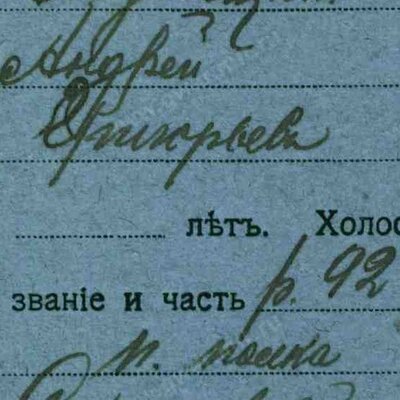 Андрей
Григорьевъ
лѣтъ. Холос
званіе и часть р. 92
п. полка